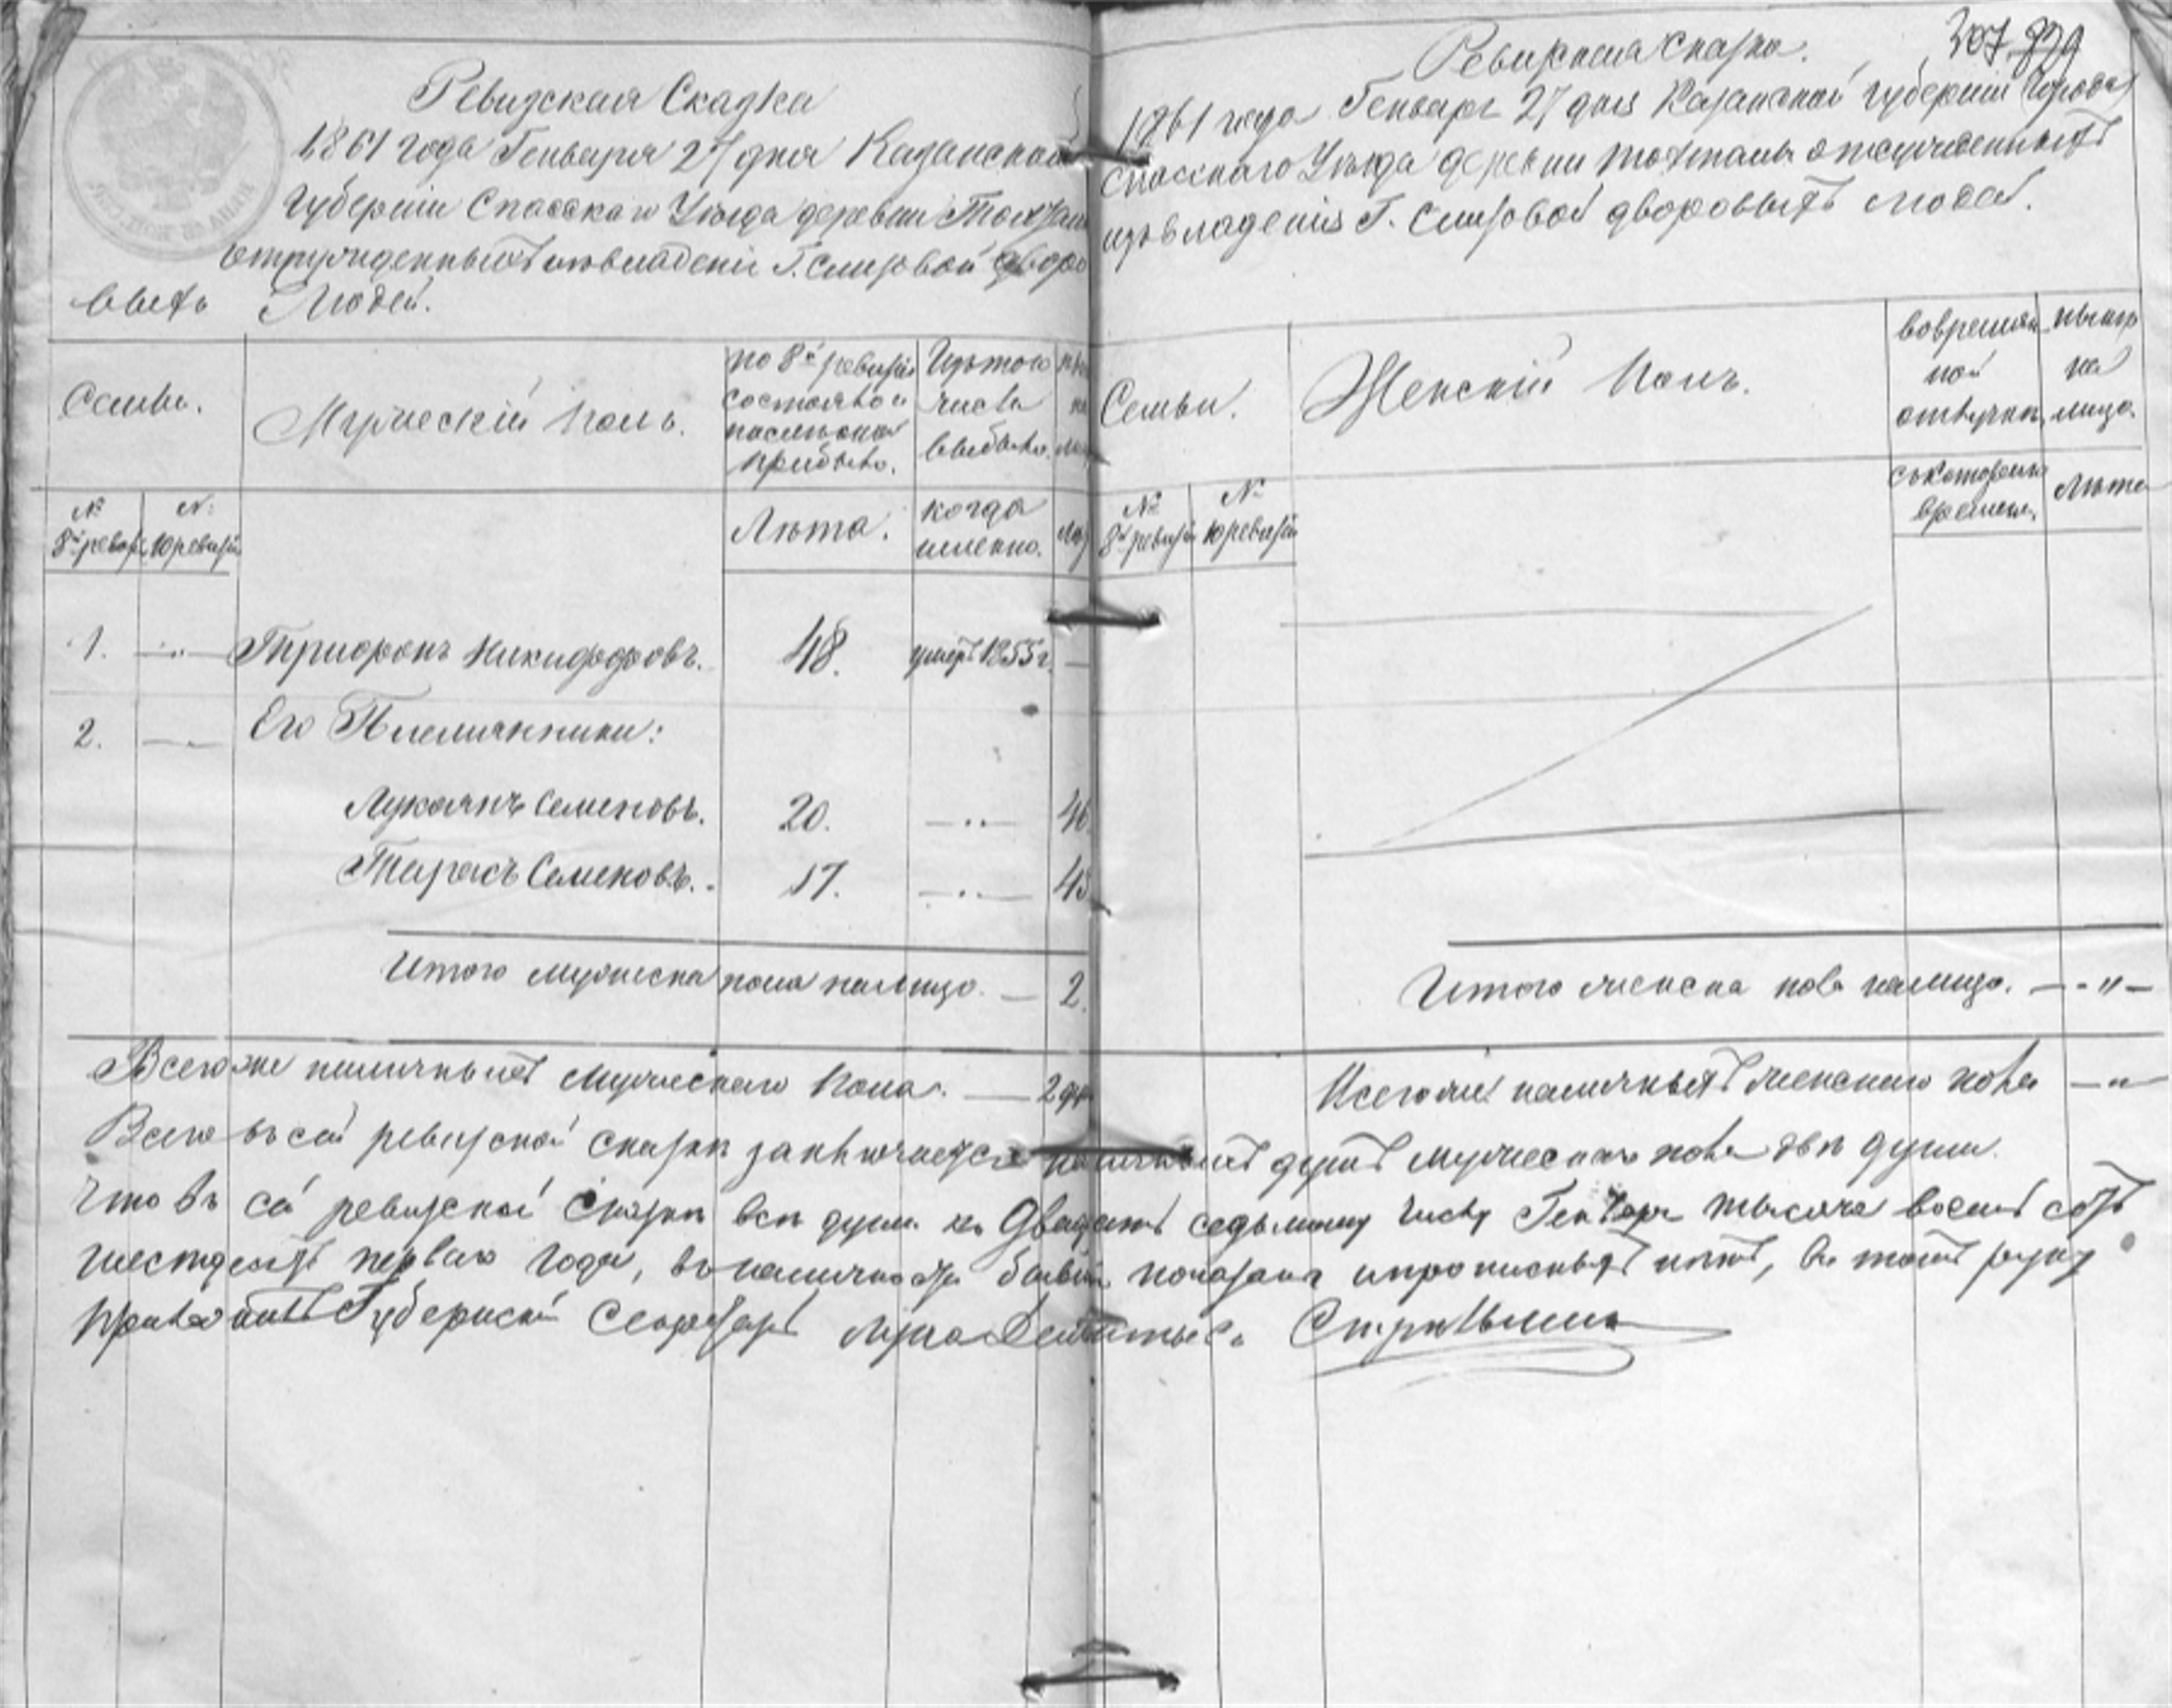 Ревизская Сказка
1861 года Генваря 27 дня Казанской
Губерніи Спасскаго Уѣзда деревни
изъ владенія Г. дворо
выхъ Людей.
Семьи.
Мужескій полъ.
по 8й ревизіи
состояло и
после оной
прибыло.
Изъ того
числа
выбыло.
№
8й ревиз.
№
10 ревизіи
Лѣта.
когда
именно.
1. Никифоровъ. 48. умеръ 1855 г. —
2. Его Племянники:
Лукоянъ Семеновъ. 20. 46.
Тарасъ Семеновъ. 17. 43
Итого мужеска пола налицо. — 2.
Всего же наличныхъ Мужескаго Пола. — 2 ду.
307 829
Ревизская Сказка.
1861 года Генваря 27 дня Казанской губерніи города
Спасскаго Уѣзда деревни
изъ владенія Г. дворовыхъ людей.
Семьи.
Женскій Полъ.
во времен
ной
отлучки
ныне
на
лицо.
№
8й ревизіи
№
10 ревизіи
съ котораго
времени.
Лѣта
Итого женска пола налицо. — " —
Всего же наличныхъ женскаго пола — " —
Всего въ сей ревизской сказки заключается наличныхъ душъ мужескаго пола двѣ души.
Что въ сей ревизской Сказки всѣ души къ Двадцать седьмому числу Генваря тысяча восемь сотъ
шестдесятъ перваго года, въ наличности бывшія показаны и прописныхъ нѣтъ, въ томъ руку
приложилъ Губернскій Секретарь